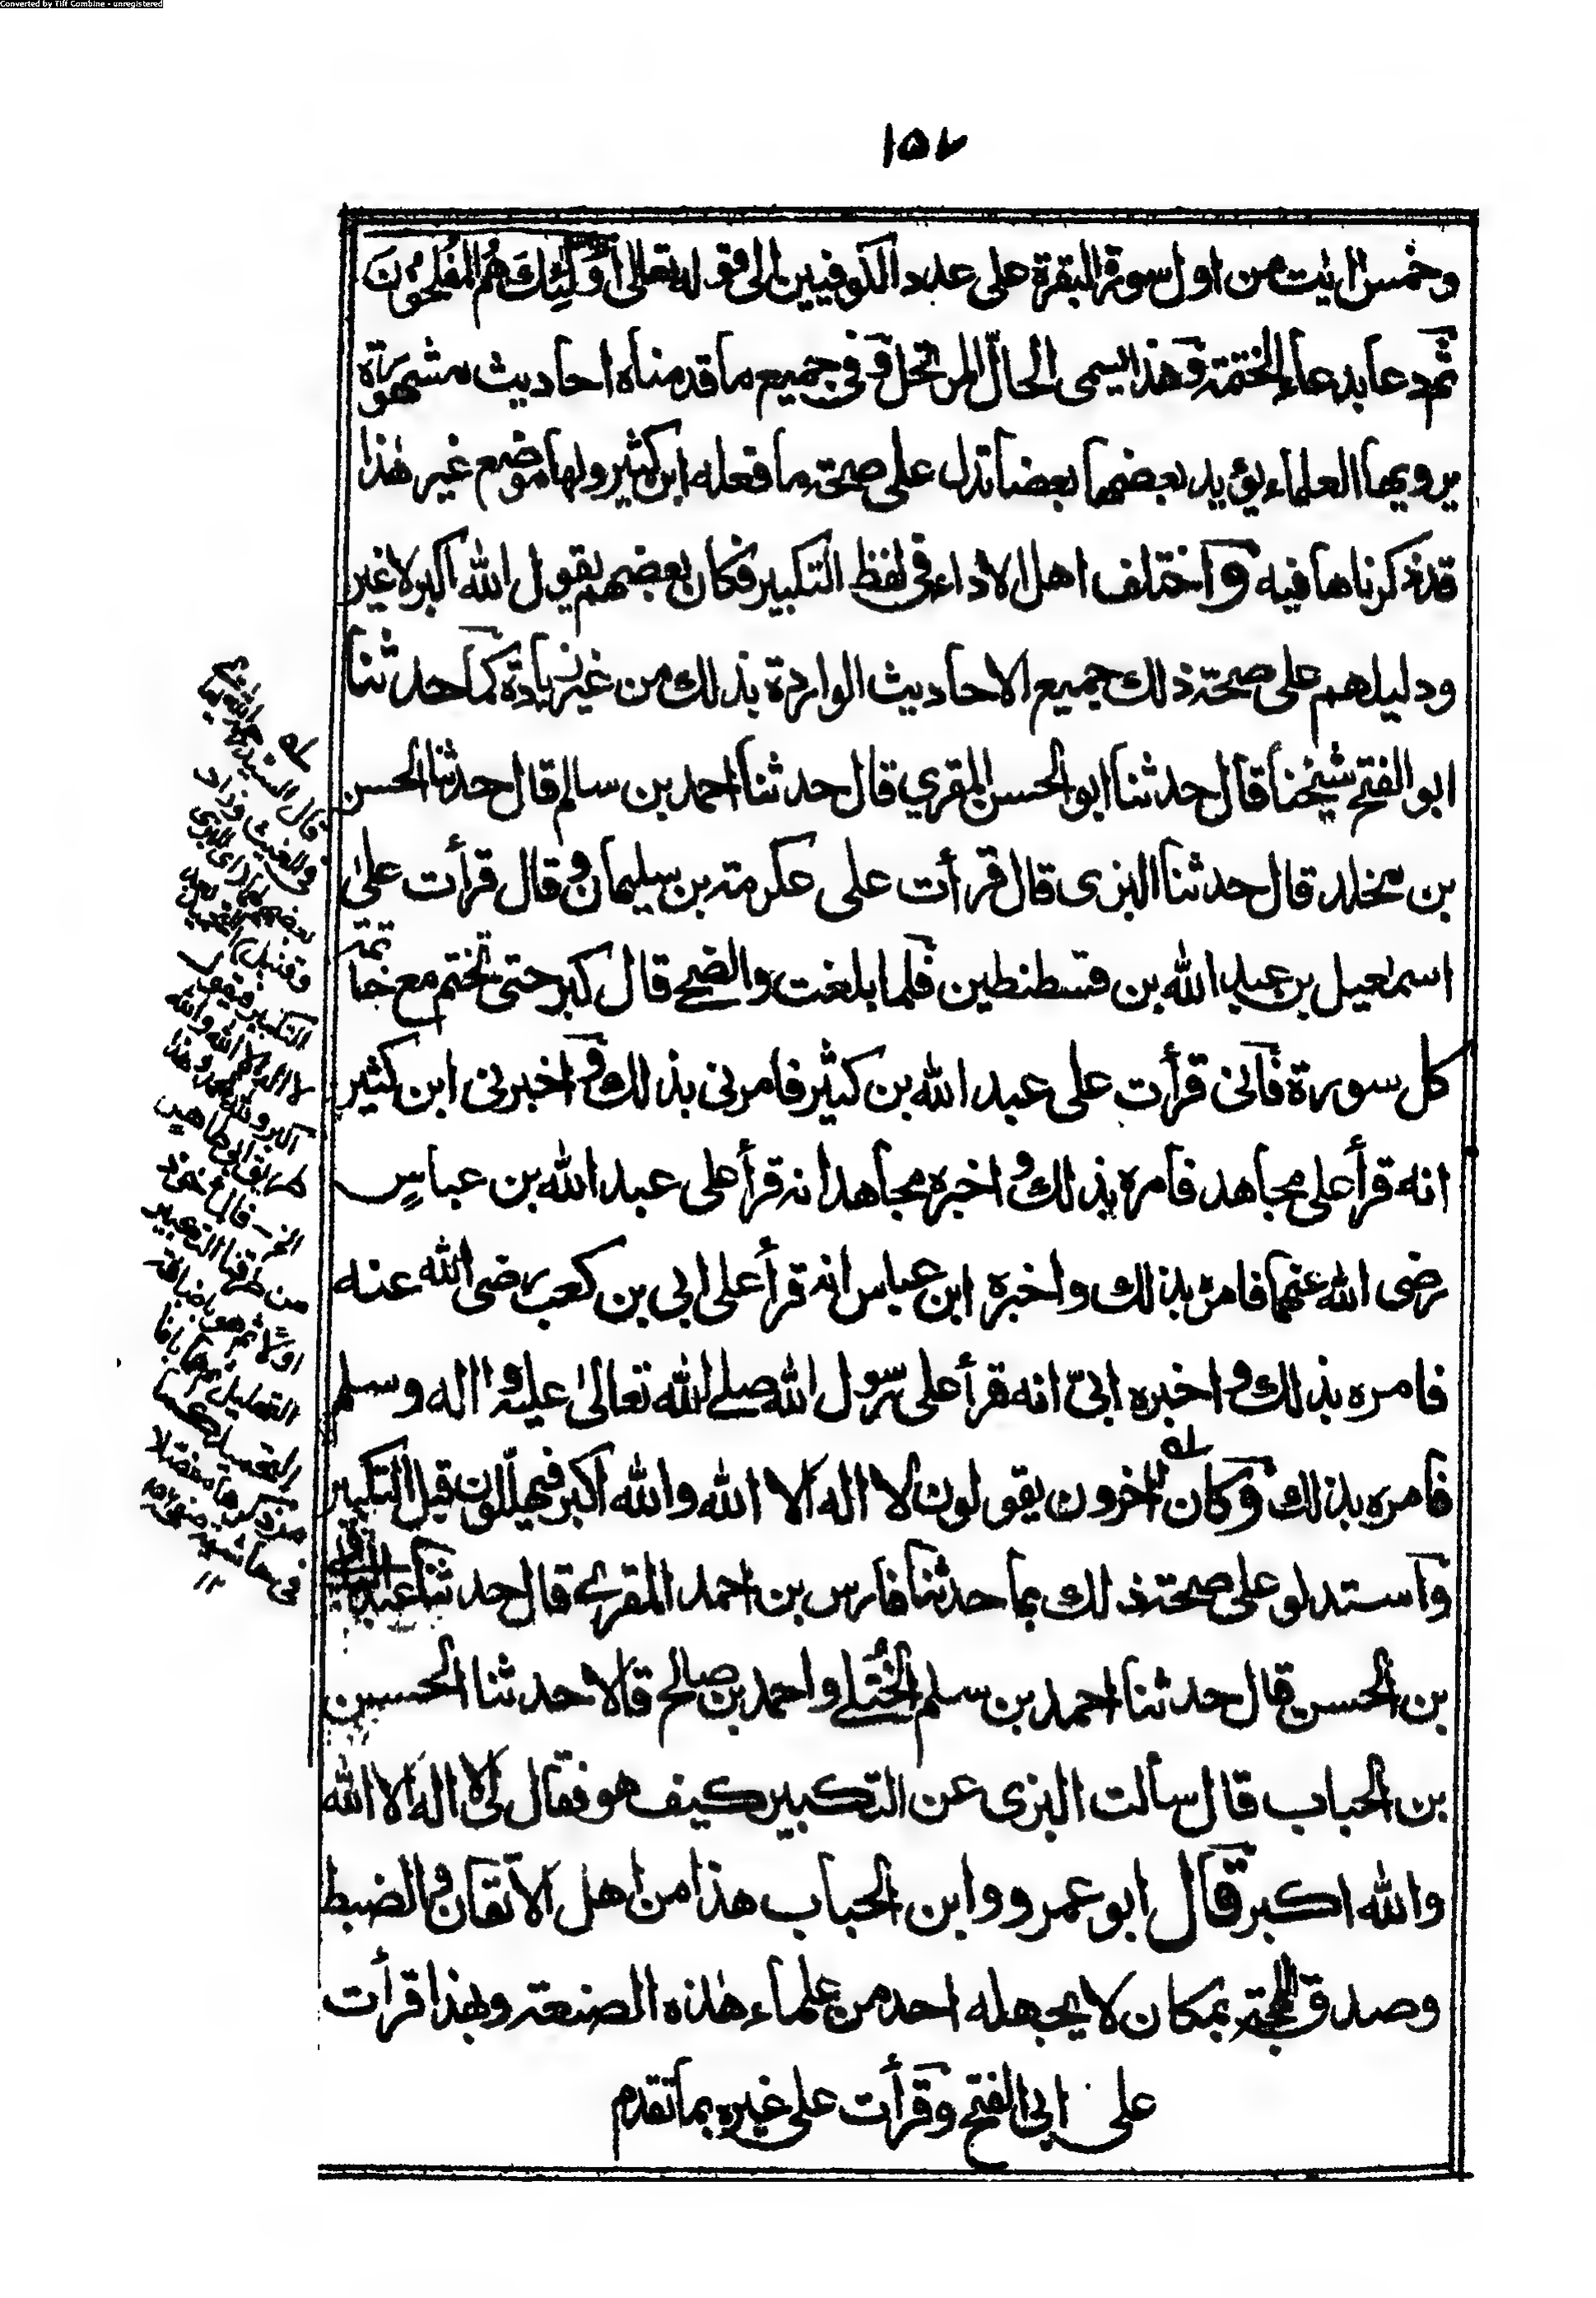 Converted by Tiff Combine - unregistered
١٥٧
وخمس اٰيٰت من اول سورة البقرة على عدد الكوفيين الى قوله تعالى أُولٰئِكَ هُمُ المُفْلِحُوْنَ
ثم دعا بدعاء الختمة وهذا يسمى الحالّ المرتحل و فى جميع ما قدمناه احاديث مشهورة
يرويها العلماء يؤيد بعضها بعضا تدل على صحة ما فعله ابن كثير ولها موضع غير هٰذا
قد ذكرناها فيه واختلف اهل الاداء فى لفظ التكبير فكان بعضهم يقول الله اكبر لا غير
ودليلهم على صحة ذلك جميع الاحاديث الواردة بذلك من غير زيادة كما حدثنا
ابو الفتح شيخنا قال حدثنا ابو الحسن المقري قال حدثنا احمد بن سالم قال حدثنا الحسن
بن مخلد قال حدثنا البزى قال قرأت على عكرمة بن سليمان و قال قرأت علىٰ
اسمٰعيل بن عبد الله بن قسطنطين فلما بلغت والضحى قال كبر حتى تختم مع خاتمة
كل سورة فانى قرأت على عبد الله بن كثير فامرنى بذلك و اخبرنى ابن كثير
انه قرأ على مجاهد فامره بذلك و اخبره مجاهد انه قرأ على عبد الله بن عباسٍ
رضى الله عنهما فامره بذلك واخبره ابن عباس انه قرأ على ابي بن كعب رضى الله عنه
فامره بذلك و اخبره ابىّ انه قرأ على رسول الله صلى الله تعالىٰ عليه و اٰله وسلم
فامره بذلك وكان اٰخرون يقولون لا اله الا الله والله اكبر فيهلّلون قبل التكبير
واستدلو على صحة ذلك بما حدثنا فارس بن احمد المقرى قال حدثنا عبد الباقى
بن الحسن قال حدثنا احمد بن سلم الخُتّلى واحمد بن صالح قالا حدثنا الحسين
بن الحباب قال سألت البزى عن التكبير كيف هو فقال لى لا اله الا الله
والله اكبر قال ابو عمرو وابن الحباب هذا من اهل الاتقان و الضبط
وصدق اللهجة بمكان لا يجهله احد من علماء هٰذه الصنعة وبهذا قرأت
على ابى الفتح وقرأت على غيره بما تقدم
قال السيد
فى الغيث وزاد
بعضهم
التكبير فيقول
لا اله الا الله والله
اكبر ولله الحمد وهذا
طريق ابى طاهر
من طرقنا
التهليل